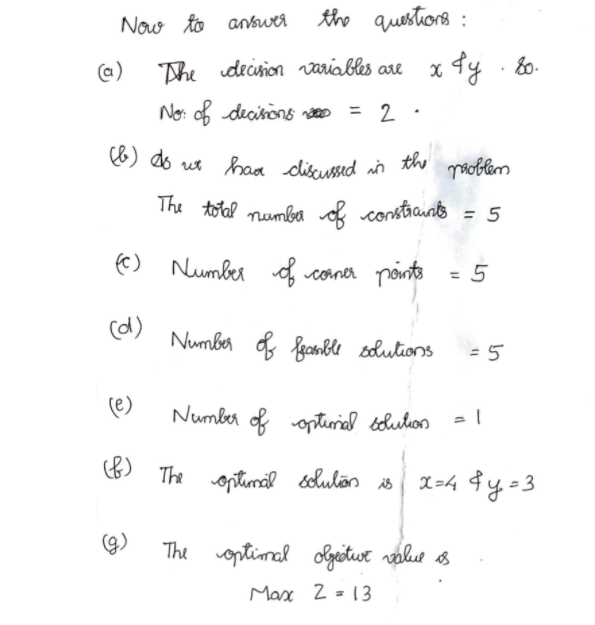 Now to answer the questions :
(a) The decision variables are x & y . So.
No: of decisions = 2 .
(b) As we have discussed in the problem
The total number of constraints = 5
(c) Number of corner points = 5
(d) Number of feasible solutions = 5
(e) Number of optimal solution = 1
(f) The optimal solution is x=4 & y=3
(g) The optimal objective value is
Max Z = 13